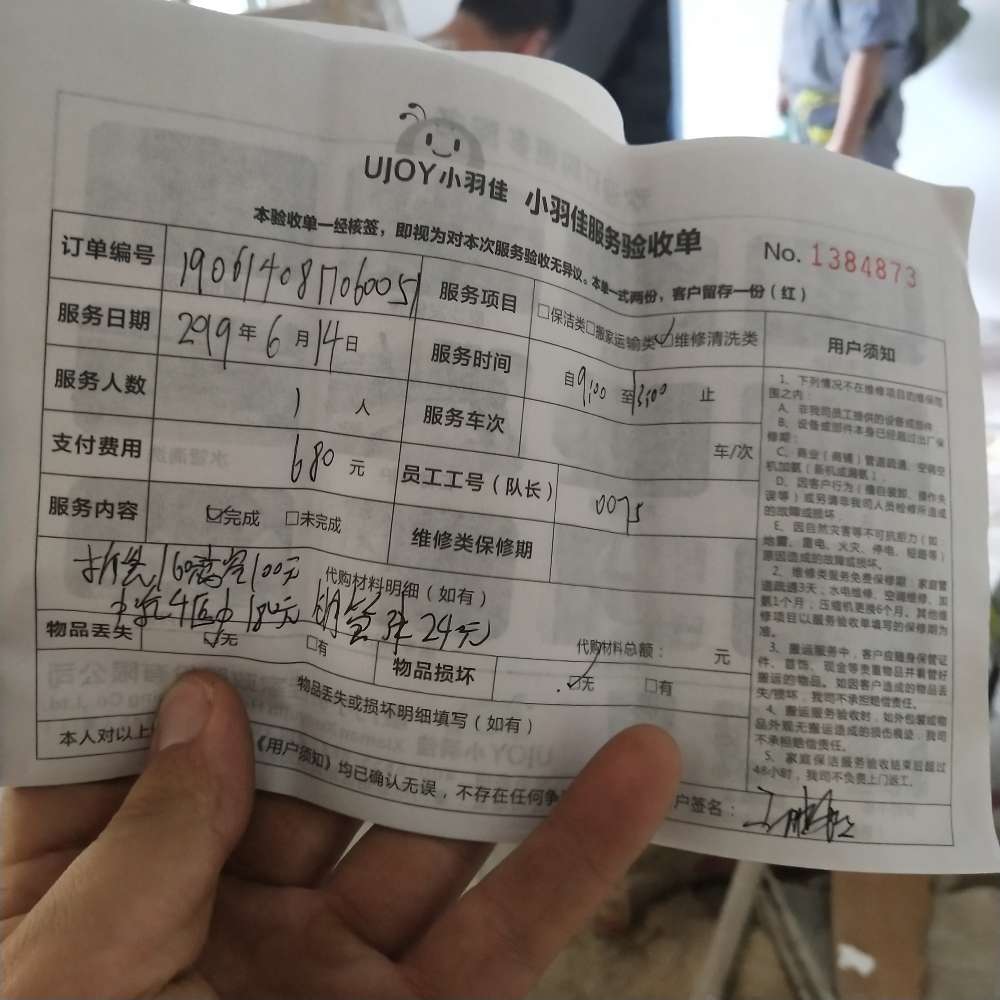 UJOY小羽佳 小羽佳服务验收单
No. 1384873
本验收单一经核签，即视为对本次服务验收无异议。本单一式两份，客户留存一份（红）
订单编号 1906140817060051 服务项目 □保洁类□搬家运输类☑维修清洗类
服务日期 2019年6月14日 服务时间 自9:00至13:00止
服务人数 1人 服务车次 车/次
支付费用 680元 员工工号（队长） 0075
服务内容 ☑完成 □未完成 维修类保修期
代购材料明细（如有）
100元
180元 24元
代购材料总额： 元
物品丢失 ☑无 □有 物品损坏 ☑无 □有
物品丢失或损坏明细填写（如有）
本人对以上
《用户须知》均已确认无误，不存在任何争
户签名：
用户须知
1、下列情况不在维修项目的维保范
围之内：
A、非我司员工提供的设备或部件
B、设备或部件本身已经超过出厂保
修期；
C、商业（商铺）管道疏通、空调空
机加氨（新机或漏氨）；
D、因客户行为（擅自装卸、操作失
误等）或另请非我司人员检修所造成
的故障或损坏
E、因自然灾害等不可抗拒力（如：
地震、雷电、火灾、停电、短路等）
原因造成的故障或损坏。
2、维修类服务免费保修期：家庭管
道疏通3天，水电维修、空调维修、加
氨1个月，压缩机更换6个月。其他维
修项目以服务验收单填写的保修期为
准。
3、搬运服务中，客户应随身保管证
件、首饰、现金等贵重物品并看管好
搬运的物品。如因客户造成的物品丢
失/损坏，我司不承担赔偿责任。
4、搬运服务验收时，如外包装或物
品外观无搬运造成的损伤痕迹，我司
不承担赔偿责任。
5、家庭保洁服务验收结束后超过
48小时，我司不负责上门返工。